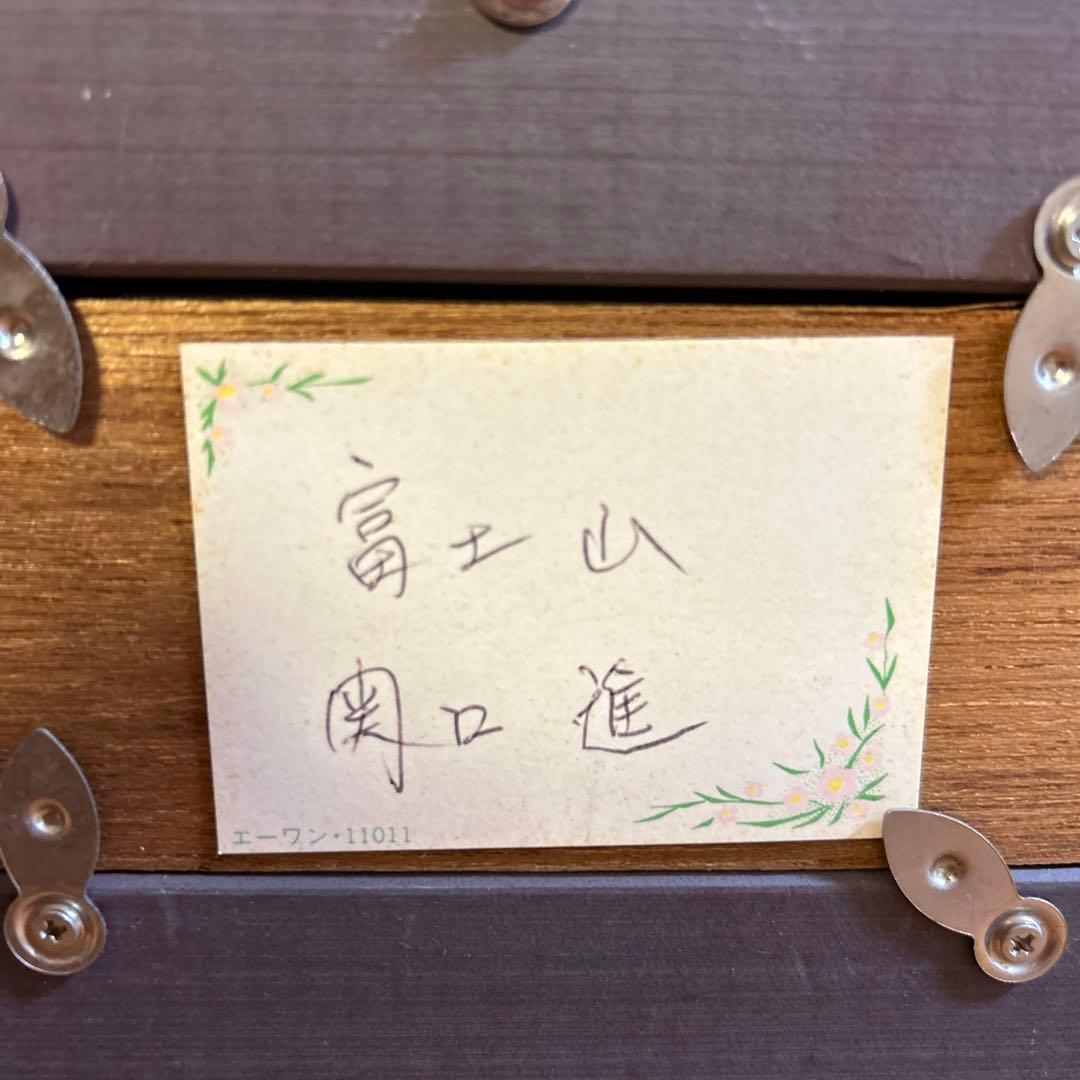 富士山
関口進
エーワン・11011